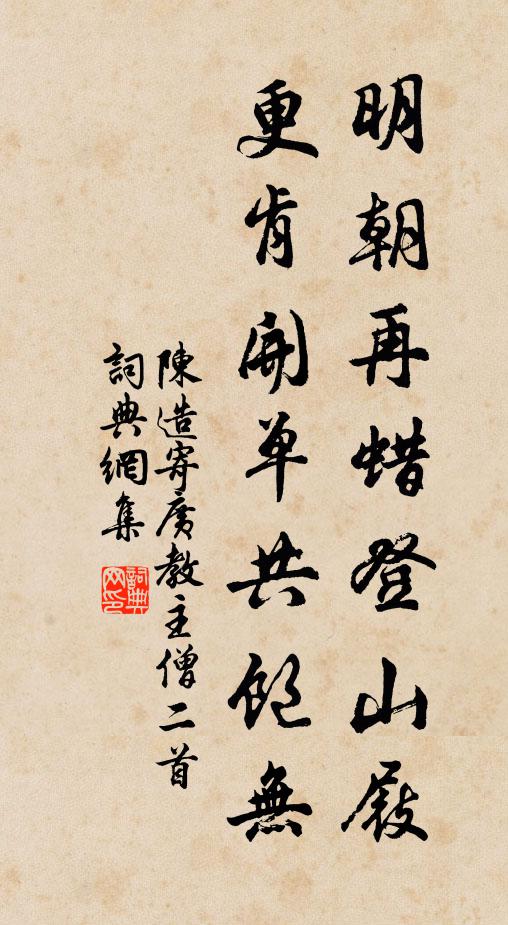 明朝再蜡登山屐
更肯開單共飽無
陳造寄廣教主僧二首
詞典網集
詞典网印